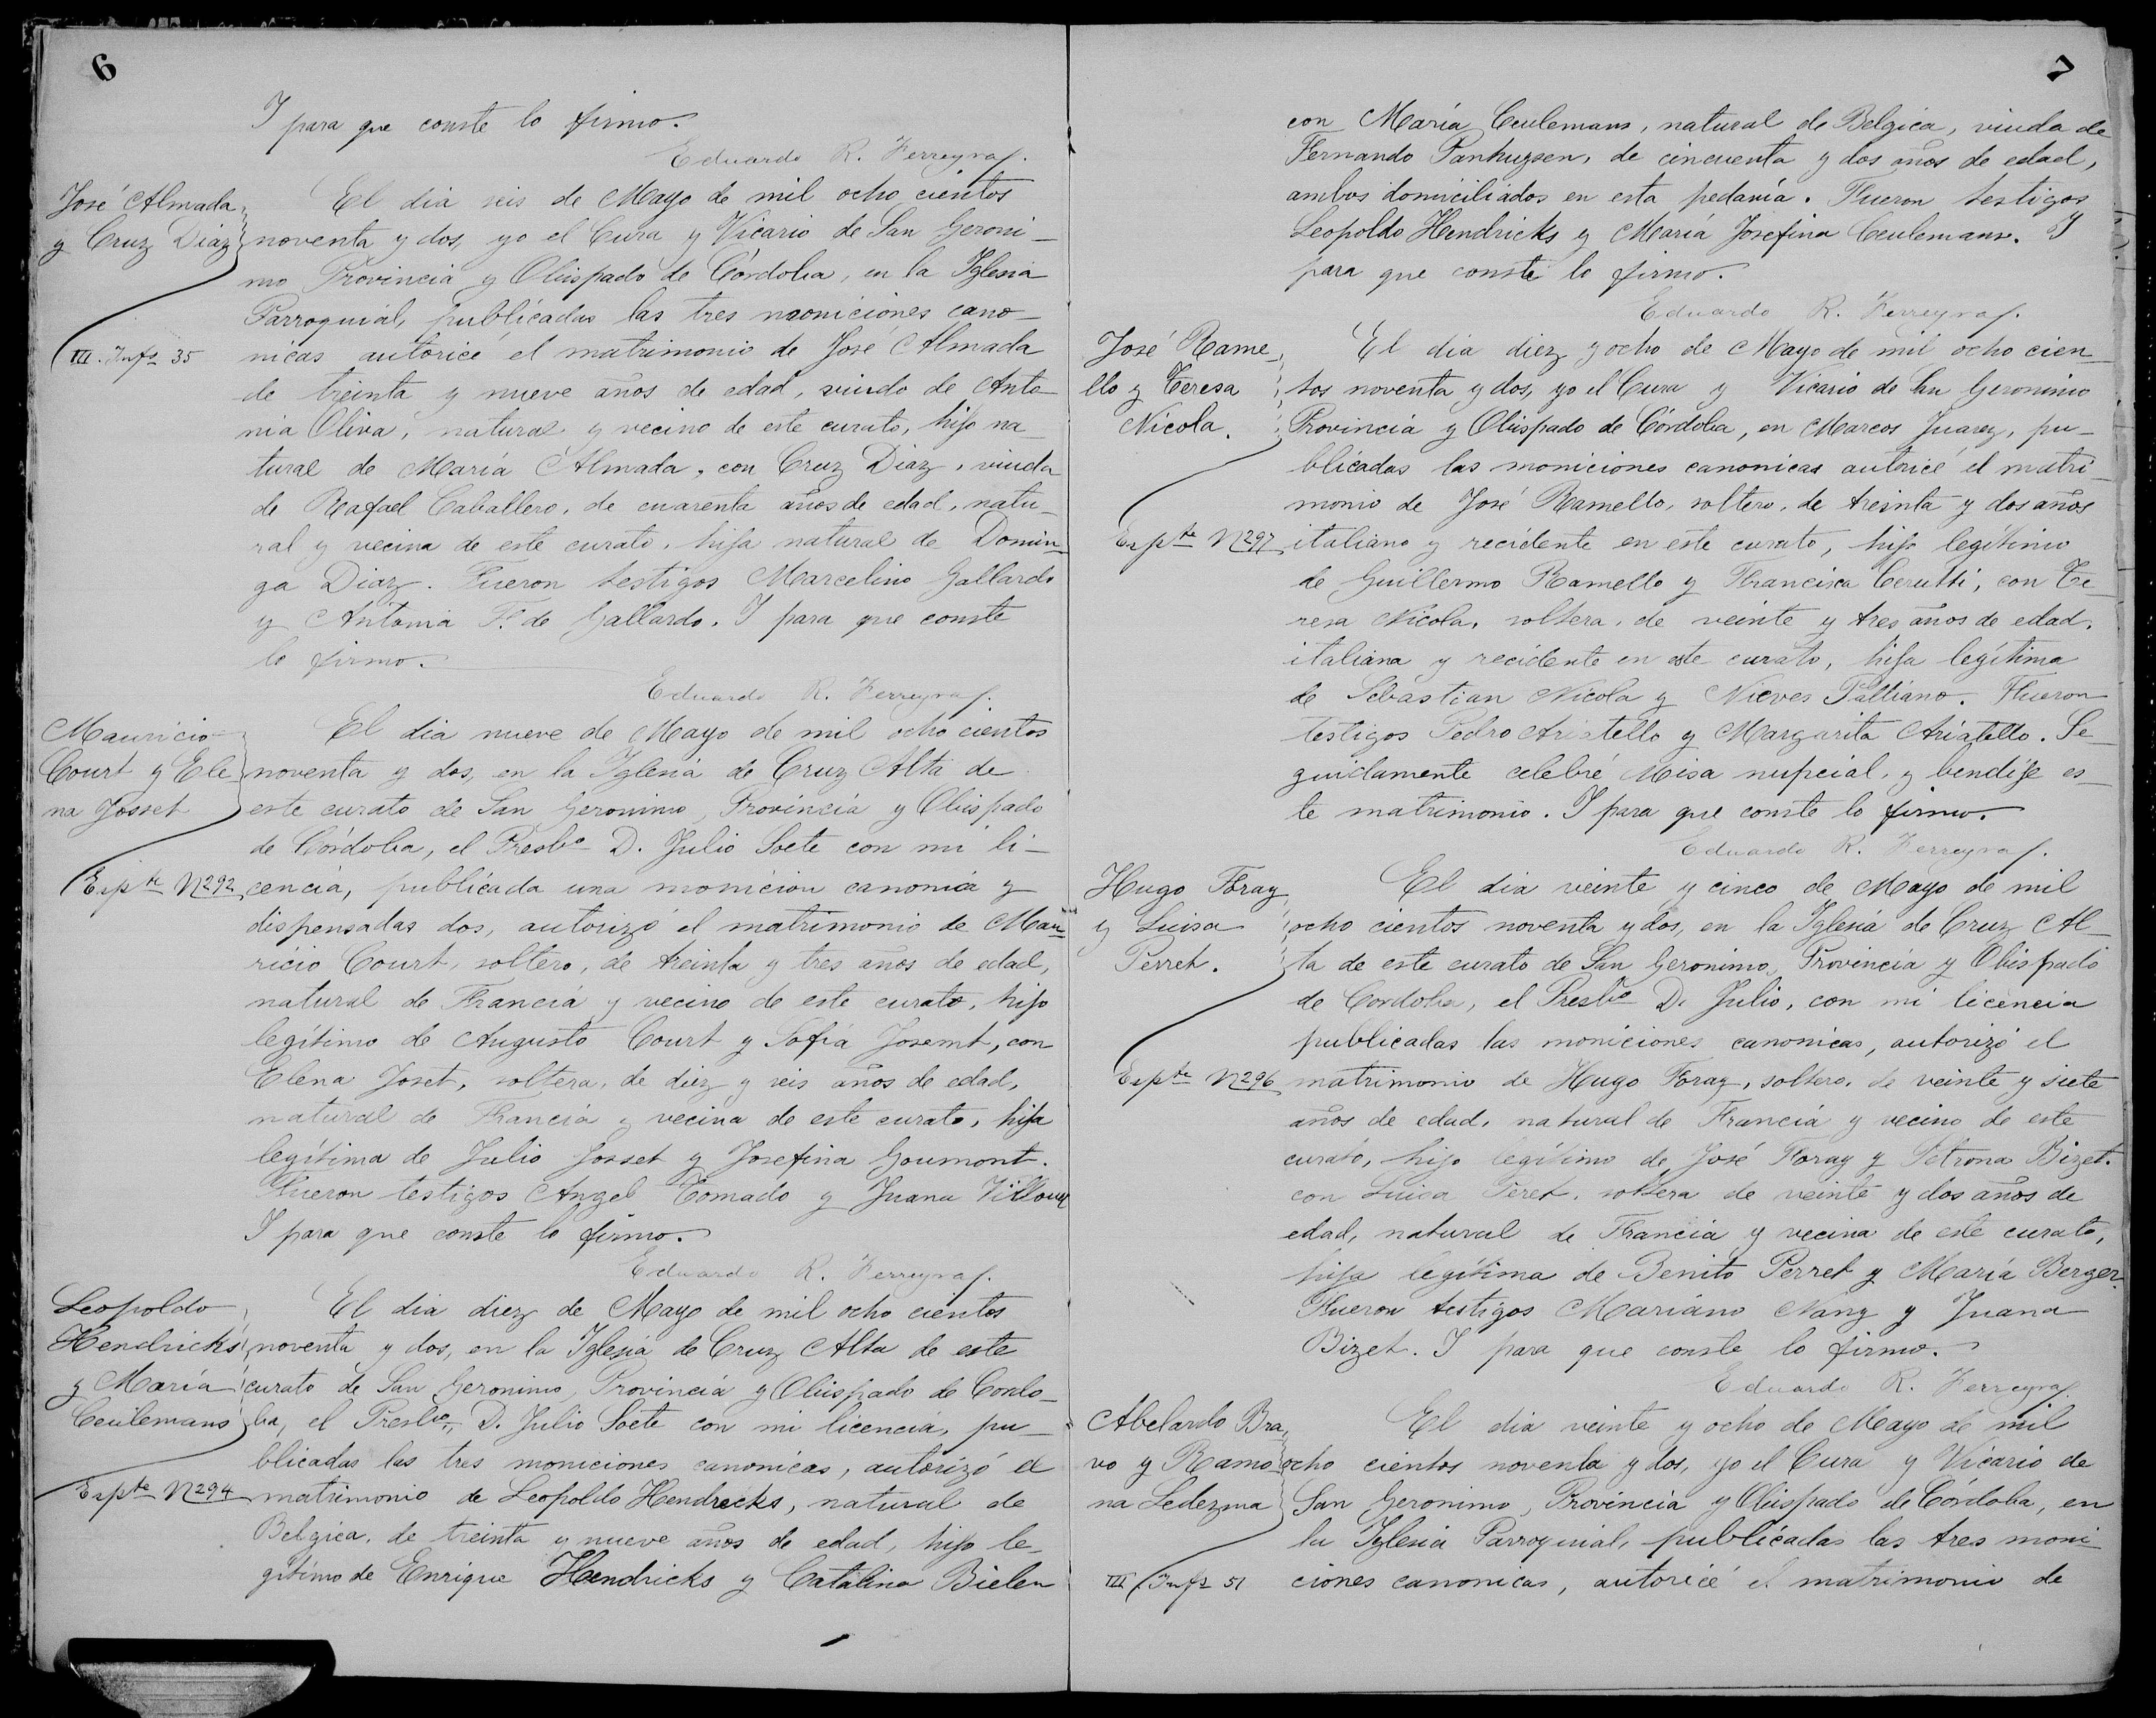 6
Y para que conste lo firmo.
Eduardo R. Ferreyra
José Almada
y Cruz Diaz
III. Infs 35
El dia seis de Mayo de mil ocho cientos
noventa y dos, yo el Cura y Vicario de San Geroni-
mo Provincia y Obispado de Córdoba, en la Iglesia
Parroquial, publicadas las tres moniciones cano-
nicas autoricé el matrimonio de José Almada
de treinta y nueve años de edad, viudo de Anto-
nia Oliva, natural y vecino de este curato, hijo na-
tural de María Almada, con Cruz Diaz, viuda
de Rafael Caballero, de cuarenta años de edad, natu-
ral y vecina de este curato, hija natural de Domin-
ga Diaz. Fueron testigos Marcelino Gallardo
y Antonia F. de Gallardo. Y para que conste
lo firmo.
Eduardo R. Ferreyra
Mauricio
Court y Ele
na Josset
Expte Nº 292
El dia nueve de Mayo de mil ocho cientos
noventa y dos, en la Iglesia de Cruz Alta de
este curato de San Geronimo, Provincia y Obispado
de Córdoba, el Presbo D. Julio Soete con mi li-
cencia, publicada una monicion canonica y
dispensadas dos, autorizó el matrimonio de Mau-
ricio Court, soltero, de treinta y tres años de edad,
natural de Francia y vecino de este curato, hijo
legítimo de Augusto Court y Sofía Josemt, con
Elena Joset, soltera, de diez y seis años de edad,
natural de Francia y vecina de este curato, hija
legítima de Julio Josset y Josefina Goumont.
Fueron testigos Angel Tomado y Juana
Y para que conste lo firmo.
Eduardo R. Ferreyra
Leopoldo
Hendricks
y María
Ceulemans
Expte Nº 294
El dia diez de Mayo de mil ocho cientos
noventa y dos, en la Iglesia de Cruz Alta de este
curato de San Geronimo, Provincia y Obispado de Cordo-
ba, el Presbo D. Julio Soete con mi licencia, pu-
blicadas las tres moniciones canonicas, autorizó el
matrimonio de Leopoldo Hendrecks, natural de
Belgica, de treinta y nueve años de edad, hijo le-
gítimo de Enrique Hendricks y Catalina Bielen
7
con María Ceulemans, natural de Belgica, viuda de
Fernando Panhuysen, de cincuenta y dos años de edad,
ambos domiciliados en esta pedanía. Fueron testigos
Leopoldo Hendricks y María Josefina Ceulemans. Y
para que conste lo firmo.
Eduardo R. Ferreyra
José Rame-
llo y Teresa
Nicola.
Expte Nº 297
El dia diez y ocho de Mayo de mil ocho cien-
tos noventa y dos, yo el Cura y Vicario de San Geronimo
Provincia y Obispado de Córdoba, en Marcos Juarez, pu-
blicadas las moniciones canonicas autoricé el matri-
monio de José Ramello, soltero, de treinta y dos años
italiano y recidente en este curato, hijo legítimo
de Guillermo Ramello y Francisca Cerutti, con Te-
resa Nicola, soltera, de veinte y tres años de edad,
italiana y recidente en este curato, hija legítima
de Sebastian Nicola y Nieves Palliano. Fueron
testigos Pedro Ariatello y Margarita Ariatello. Se-
guidamente celebré Misa nupcial, y bendije es-
te matrimonio. Y para que conste lo firmo.
Eduardo R. Ferreyra
Hugo Foray
y Luisa
Perret.
Expte Nº 296
El dia veinte y cinco de Mayo de mil
ocho cientos noventa y dos, en la Iglesia de Cruz Al-
ta de este curato de San Geronimo, Provincia y Obispado
de Cordoba, el Presbo D. Julio, con mi licencia
publicadas las moniciones canonicas, autorizó el
matrimonio de Hugo Foray, soltero, de veinte y siete
años de edad, natural de Francia y vecino de este
curato, hijo legítimo de José Foray y Petrona Bizet.
con Luisa Peret, soltera de veinte y dos años de
edad, natural de Francia y vecina de este curato,
hija legítima de Benito Perret y María Berger.
Fueron testigos Mariano Nany y Juana
Bizet. Y para que conste lo firmo.
Eduardo R. Ferreyra
Abelardo Bra-
vo y Ramo-
na Ledezma
III Infs 51
El dia veinte y ocho de Mayo de mil
ocho cientos noventa y dos, yo el Cura y Vicario de
San Geronimo, Provincia y Obispado de Córdoba, en
la Iglesia Parroquial, publicadas las tres moni-
ciones canonicas, autoricé el matrimonio de